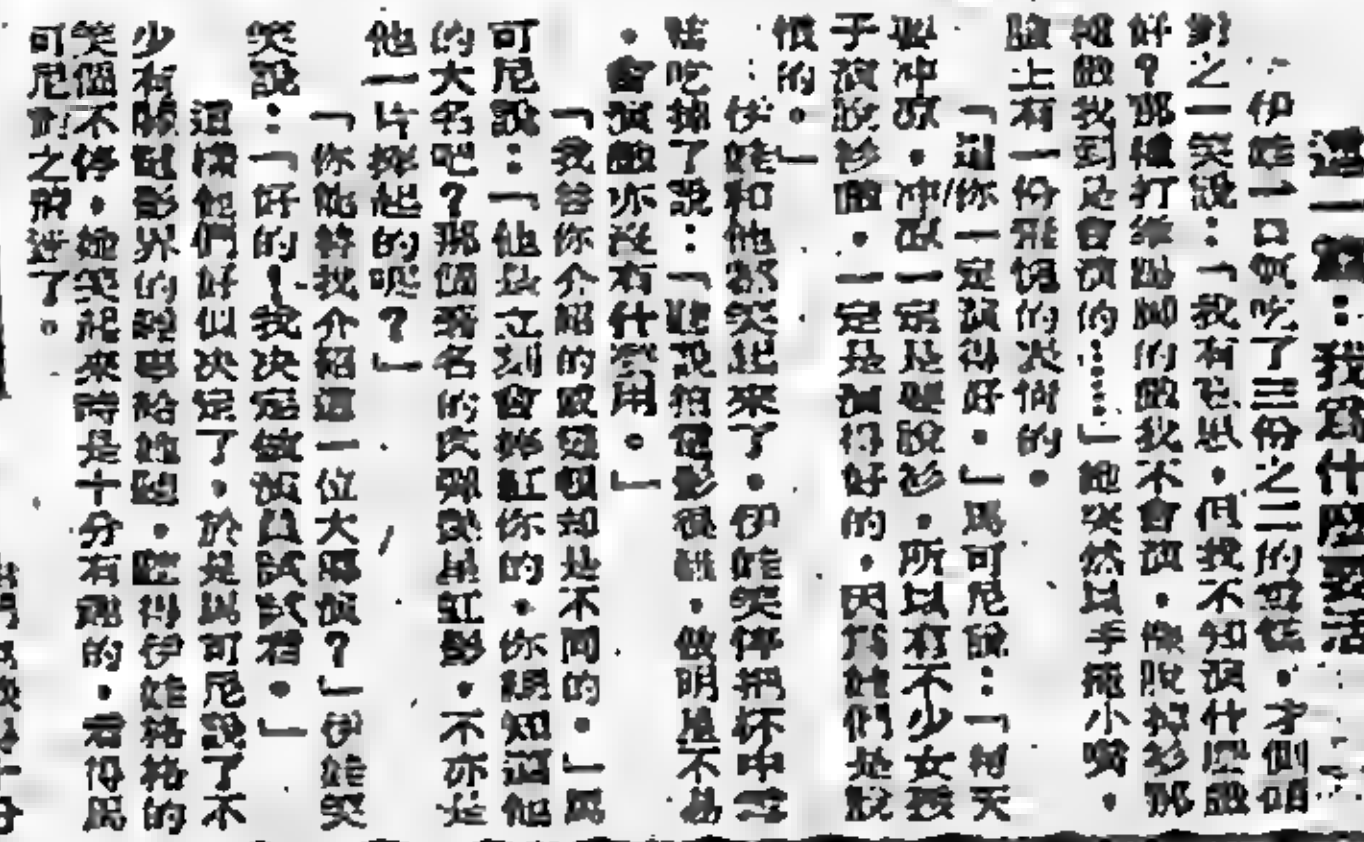 這一篇：我爲什麼要活
伊娃一口氣吃了三份之二的雪糕，才側頭
對之一笑說：「我有意思，但我不知演什麼戲
好？那種打拳踢脚的戲我不會演，像脫掉衫那
種戲我到是會演的……」她突然以手掩小嘴，
臉上有一份羞愧的表情的。
「這你一定演得好。」馬可尼說：「每天
要冲凉，冲凉一定是要脫衫，所以有不少女孩
子演脫衫戲，一定是演得好的，因爲她們是脫
慣的。」
伊娃和他都笑起來了。伊娃笑停把杯中雪
糕吃掉了說：「聽說拍電影很難，做明星不易
，會演戲亦沒有什麼用。」
「我給你介紹的導演却是不同的。」馬
可尼說：「他是立刻會捧紅你的，你想知道他
的大名吧？那個著名的肉彈就是紅影，不亦是
他一片捧起的呢？」
「你能替我介紹這一位大導演？」伊娃笑
笑說：「好的！我決定做演員試試看。」
這樣他們好似決定了，於是馬可尼說了不
少有關電影界的趣事給她聽，聽得伊娃格格的
笑個不停，她笑起來時是十分有趣的，看得馬
可尼對之着迷了。